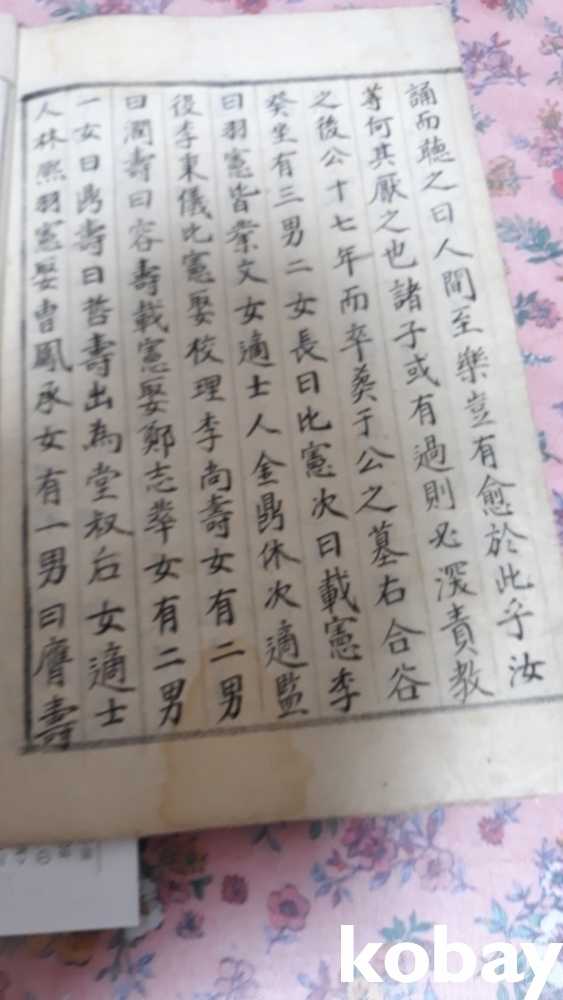 誦而聽之曰人間至樂豈有愈於此乎汝
等何其厭之也諸子或有過則必深責教
之後公十七年而卒葬于公之墓右合谷
癸坐有三男二女長曰比憲次曰載憲季
曰羽憲皆業文女適士人金鼎休次適監
役李東儀比憲娶校理李尚壽女有二男
曰潤壽曰容壽載憲娶鄭志華女有二男
一女曰鼎壽曰哲壽出為堂叔后女適士
人林熙羽憲娶曺鳳承女有一男曰膺壽
kobay